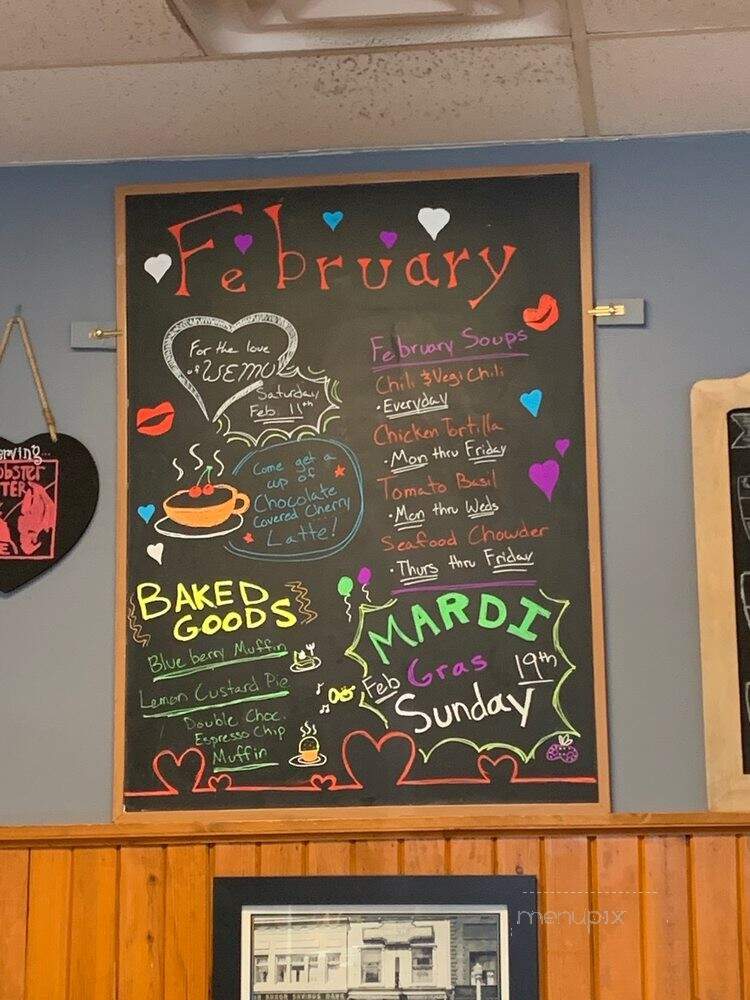 February
For the love
of WEMU
Saturday
Feb. 11th
Come get a
cup of
Chocolate
Covered Cherry
Latte!
BAKED
GOODS
Blueberry Muffin
Lemon Custard Pie
Double Choc.
Espresso Chip
Muffin
February Soups
Chili & Vegi Chili
• Everyday
Chicken Tortilla
• Mon thru Friday
Tomato Basil
• Mon thru Weds
Seafood Chowder
• Thurs thru Friday
MARDI
Gras
Feb 19th
Sunday
menupix